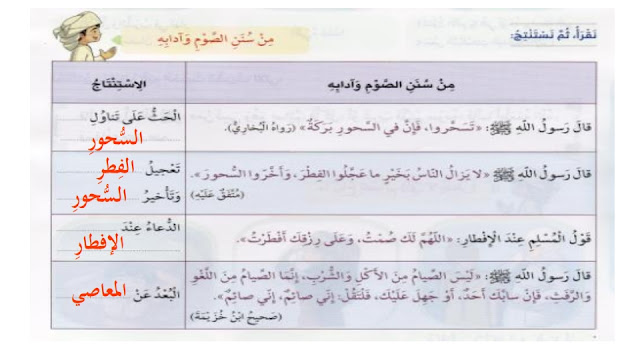 نَقْرَأُ، ثُمَّ نَسْتَنْتِجُ:
مِنْ سُنَنِ الصَّوْمِ وَآدابِهِ
مِنْ سُنَنِ الصَّوْمِ وَآدابِهِ
الِاسْتِنْتاجُ
قالَ رَسولُ اللهِ ﷺ: «تَسَحَّروا، فَإِنَّ في السَّحورِ بَرَكَةً» (رَواهُ البُخارِيُّ).
الْحَثُّ عَلَى تَناوُلِ
السُّحورِ
قالَ رَسولُ اللهِ ﷺ: «لا يَزالُ النّاسُ بِخَيْرٍ ما عَجَّلوا الفِطْرَ، وَأَخَّروا السُّحورَ».
(مُتَّفَقٌ عَلَيْهِ)
تَعْجيلُ الفِطرِ
وَتَأْخيرُ السُّحورِ
قَوْلُ الْمُسْلِمِ عِنْدَ الْإِفْطارِ: «اللَّهُمَّ لَكَ صُمْتُ، وَعَلَى رِزْقِكَ أَفْطَرْتُ».
الدُّعاءُ عِنْدَ
الإفطارِ
قالَ رَسولُ اللهِ ﷺ: «لَيْسَ الصِّيامُ مِنَ الْأَكْلِ وَالشُّرْبِ، إِنَّمَا الصِّيامُ مِنَ اللَّغْوِ
وَالرَّفَثِ، فَإِنْ سابَّكَ أَحَدٌ، أَوْ جَهِلَ عَلَيْكَ، فَلْتَقُلْ: إِنّي صائِمٌ، إِنّي صائِمٌ».
(صَحيحُ ابْنُ خُزَيْمَةَ)
الْبُعْدُ عَنْ المعاصي